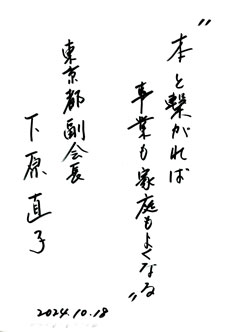 "本と繋がれば
事業も家庭もよくなる"
東京都副会長
下原直子
2024.10.18